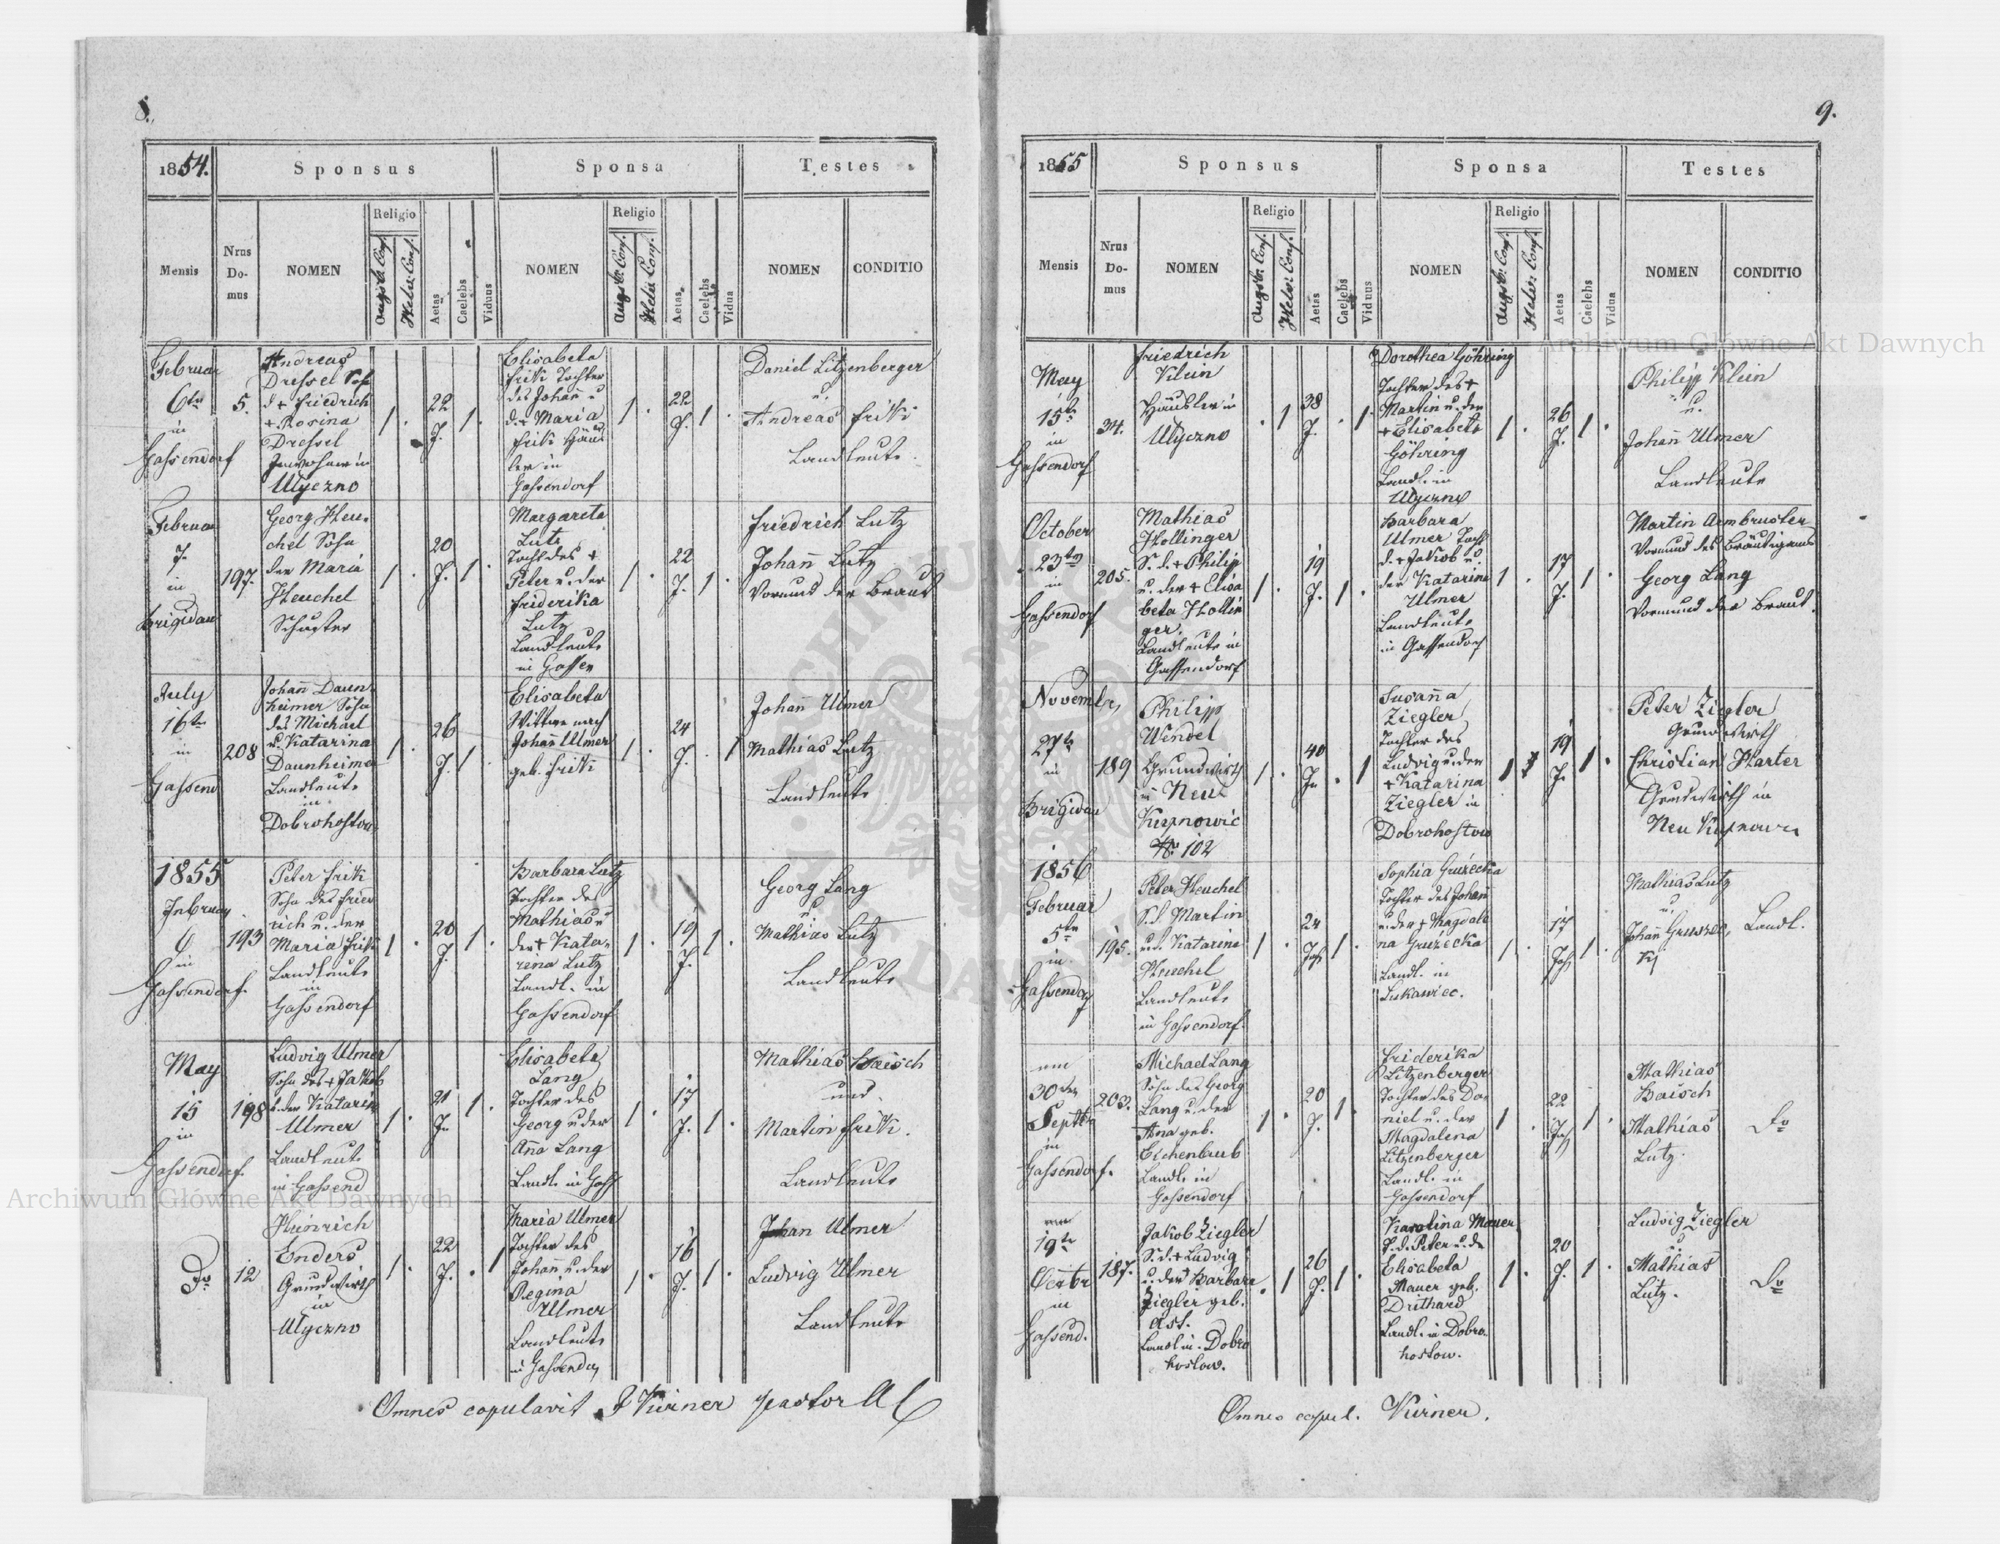 8.
1854.
Sponsus
Sponsa
Testes
Mensis
Nrus Do- mus
NOMEN
Religio
Augsb. Conf.
Helv. Conf.
Aetas
Caelebs
Viduus
NOMEN
Religio
Augsb. Conf.
Helv. Conf.
Aetas
Caelebs
Vidua
NOMEN
CONDITIO
Februar
6ten
in
Gassendorf
5.
Andreas
Dressel Sohn
d + Friedrich
+ Rosina
Dressel
Inwohner in
Ulyczno
1 .
22
J.
1 .
Elisabeta
Frik Tochter
des Johañ u
d. + Maria
Frik Häus
ler in
Gassendorf
1 .
22
J.
1 .
Daniel Litzenberger
u.
Andreas Frik
Landleute.
Februar
7.
in
Brigidau
197.
Georg Heu-
chel Sohn
der Maria
Heuchel
Schuster
1 .
20
J.
1 .
Margareta
Lutz
Tocht des +
Peter u. der
Friderika
Lutz
Landleute
in Gassen
1 .
22
J.
1 .
Friedrich Lutz
Johañ Lutz
Vormund der Braut
July
16ten
in
Gassend
208
Johañ Daun-
heimer Sohn
des Michael
u. Katarina
Daunheimer
Landleute
in
Dobrohostow
1 .
26
J.
1 .
Elisabeta
Wittwe nach
Johañ Ulmer
geb. Frik
1 .
24
J.
. 1
Johañ Ulmer
Mathias Lutz
Landleute
1855
in
Gassendorf
193
Peter Frik
Sohn des Fried
rich u. der
Maria Frik
Landleute
in
Gassendorf
1 .
20
J.
1 .
Barbara Lutz
Tochter des
Mathias u
der + Kata-
rina Lutz
Landl. in
Gassendorf
1 .
19
J.
1 .
Georg Lang
u
Mathias Lutz
Landleute
May
15
in
Gassendorf
198
Ludvig Ulmer
Sohn des + Jakob
u. der Katarin
Ulmer
Landleute
in Gassend
1 .
21
J.
1 .
Elisabeta
Lang
Tochter des
Georg u der
Aña Lang
Landl. in Gass
1 .
17
J.
1 .
Mathias Baisch
und
Martin Frik.
Landleute
Do
12
Heinrich
Enders
Grundwirth
in
Ulyczno
1 .
22
J.
. 1
Maria Ulmer
Tochter des
Johañ u. der
Regina
Ulmer
Landleute
in Gassendorf
1 .
16
J.
1 .
Johan Ulmer
Ludvig Ulmer
Landleute
Omnes copulavit J Kürner pastor AC
9.
1855
Sponsus
Sponsa
Testes
Mensis
Nrus Do- mus
NOMEN
Religio
Augsb. Conf.
Helv. Conf.
Aetas
Caelebs
Viduus
NOMEN
Religio
Augsb. Conf.
Helv. Conf.
Aetas
Caelebs
Vidua
NOMEN
CONDITIO
May
15te
in
Gassendorf
34.
Friedrich
Klein
Häusler in
Ulyczno
. 1
38
J.
. 1
Dorothea Göhring
Tochter des +
Martin u. der
+ Elisabeta
Göhring
Landl. in
Ulyczno
1 .
26
J.
1 .
Philipp Klein
u.
Johañ Ulmer
Landleute
October
23ten
in
Gassendorf
205.
Mathias
Hollinger
S. d. + Philip
u. der + Elisa
beta Hollin
ger.
Landleute in
Gassendorf
1 .
19
J.
1 .
Barbara
Ulmer Tocht
d. + Jakob u.
der Katarina
Ulmer
Landleute
in Gassendorf
1 .
17
J.
1 .
Martin Armbruster
Vormund des Bräutigams
Georg Lang
Vormund der Braut.
Novembr,
27te
in
Brigidau
189
Philipp
Wendel
Grundwirth
in Neu
Kupnowic
No 102
1 .
40
J.
. 1
Susaña
Ziegler
Tochter des
Ludvig u. der
+ Katarina
Ziegler in
Dobrohostow
1
19
J.
1 .
Peter Ziegler
Grundwirth
Christian Harter
Grundwirth in
Neu Kupnowic
1856
Februar
5te
in
Gassendorf
195.
Peter Heuchel
S. d. Martin
u. d. Katarina
Heuchel
Landleute
in Gassendorf
1 .
24
Jah
1 .
Sophia Gruzecka
Tochter des Johañ
u. der + Magdale
na Gruzecka
Landl. in
Lukawiec.
1 .
17
Jah
1 .
Mathias Lutz
u.
Johañ Gruszec,
ki
Landl.
am
30ten
Septbr
in
Gassendorf.
203.
Michael Lang
Sohn des Georg
Lang u. der
Aña geb.
Eichenlaub
Landl. in
Gassendorf
1 .
20
J.
1 .
Friderika
Litzenberger
Tochter des Da-
niel u. der
Magdalena
Litzenberger
Landl. in
Gassendorf
1 .
22
Jah
1 .
Mathias
Baisch
Mathias
Lutz.
Do
am
19te
Octbr
in
Gassend.
187.
Jakob Ziegler
S. d. + Ludvig
u. der Barbara
Ziegler geb.
Ast.
Landl in Dobro
hostow.
. 1
26
J.
1 .
Karolina Mauer
T. d. Peter u. d.
Elisabeta
Mauer geb.
Drithard
Landl. in Dobro-
hostow.
1 .
20
J.
1 .
Ludvig Ziegler
u
Mathias
Lutz.
Do
Omnes copul. Kürner.
Archiwum Główne Akt Dawnych
Archiwum Główne Akt Dawnych